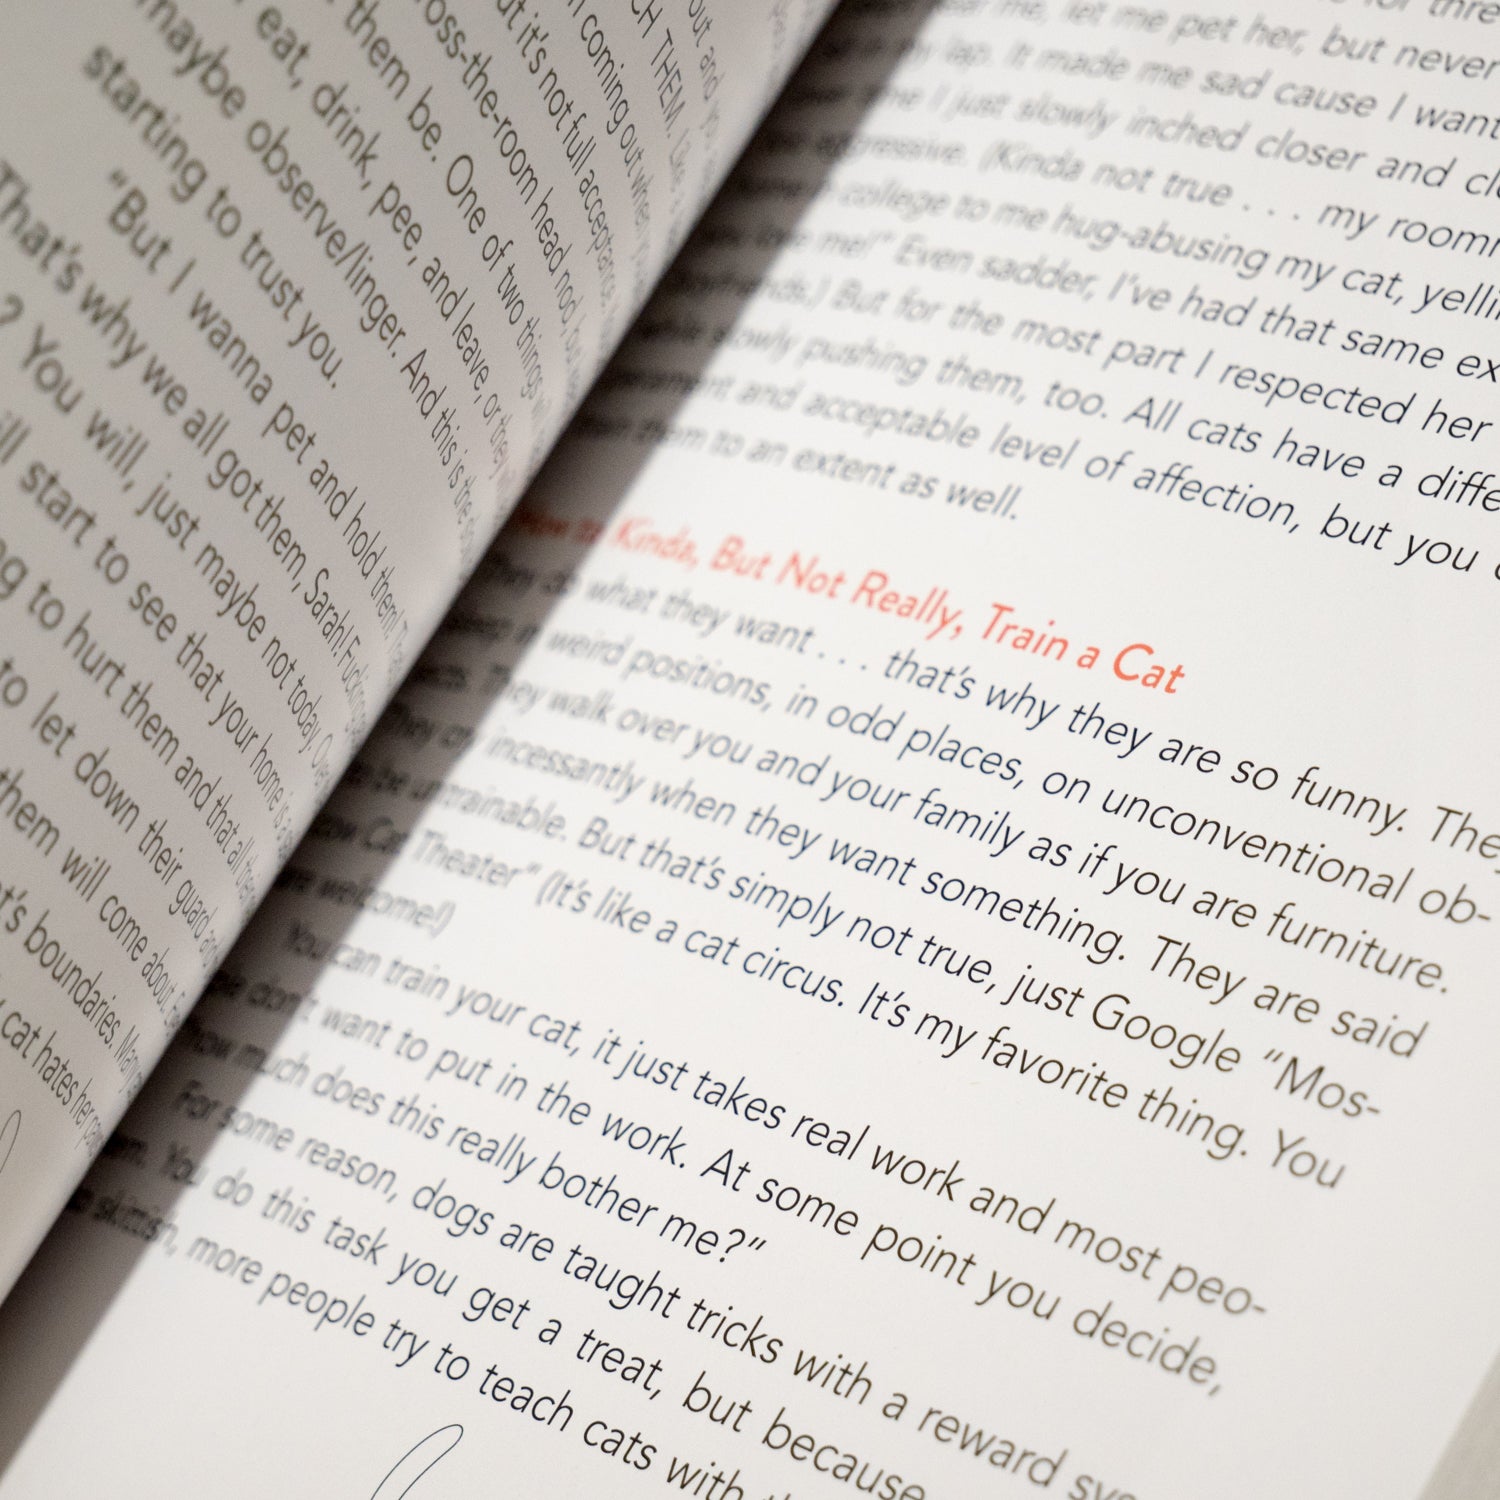 out and you
CH THEM. Like a
n coming out when you
ut it's not full acceptance.
ross-the-room head nod,
them be. One of two things will
eat, drink, pee, and leave, or they
maybe observe/linger. And this is the
starting to trust you.
"But I wanna pet and hold them!
That's why we all got them, Sarah! Fucking
? You will, just maybe not today.
ill start to see that your home is a
ng to hurt them and that all
to let down their guard and
them will come about.
t's boundaries. Many
cat hates her
me, let me pet her, but never
my lap. It made me sad cause I want
I just slowly inched closer and
aggressive. (Kinda not true . . . my
college to me hug-abusing my cat,
me!" Even sadder, I've had that same
But for the most part I respected her
slowly pushing them, too. All cats have a
and acceptable level of affection, but you
them to an extent as well.
How to Kinda, But Not Really, Train a Cat
They do what they want . . . that's why they are so funny. They
sleep in weird positions, in odd places, on unconventional ob-
jects. They walk over you and your family as if you are furniture.
They cry incessantly when they want something. They are said
to be untrainable. But that's simply not true, just Google "Mos-
cow Cat Theater" (It's like a cat circus. It's my favorite thing. You
are welcome!)
You can train your cat, it just takes real work and most peo-
ple don't want to put in the work. At some point you decide,
"How much does this really bother me?"
For some reason, dogs are taught tricks with a reward
You do this task you get a treat, but because
skittish, more people try to teach cats with